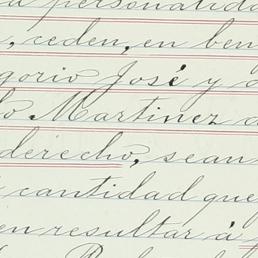 personalida
, ceden, en ben
gorio José y a
lo Martinez a
derecho, sean
cantidad que
en resultar á